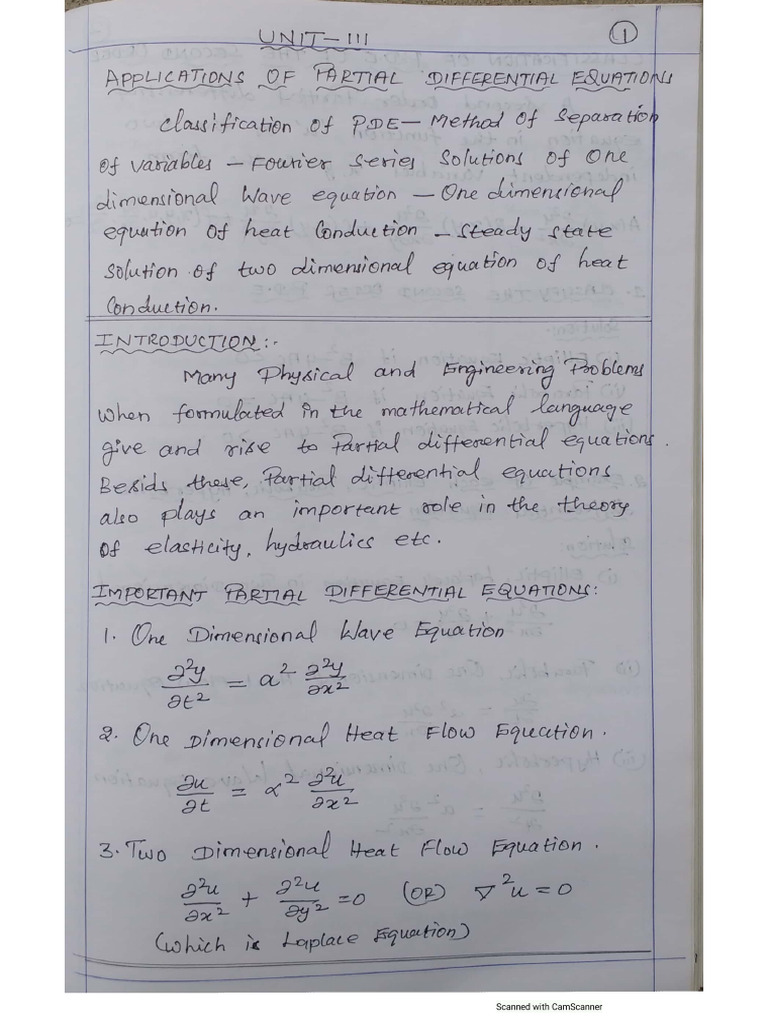 UNIT-III
1
APPLICATIONS OF PARTIAL DIFFERENTIAL EQUATIONS
Classification of P.D.E – Method of Separation
of variables – Fourier Series Solutions of One
dimensional Wave equation – One dimensional
equation of heat Conduction – Steady state
Solution of two dimensional equation of heat
Conduction.
INTRODUCTION:-
Many Physical and Engineering Problems
When formulated in the mathematical language
give and rise to Partial differential equations.
Besids these, Partial differential equations
also plays an important role in the theory
of elasticity, hydraulics etc.
IMPORTANT PARTIAL DIFFERENTIAL EQUATIONS:
1. One Dimensional Wave Equation
∂²y/∂t² = a² ∂²y/∂x²
2. One Dimensional Heat Flow Equation.
∂u/∂t = α² ∂²u/∂x²
3. Two Dimensional Heat Flow Equation.
∂²u/∂x² + ∂²u/∂y² = 0 (OR) ∇²u = 0
(Which is Laplace Equation)
Scanned with CamScanner